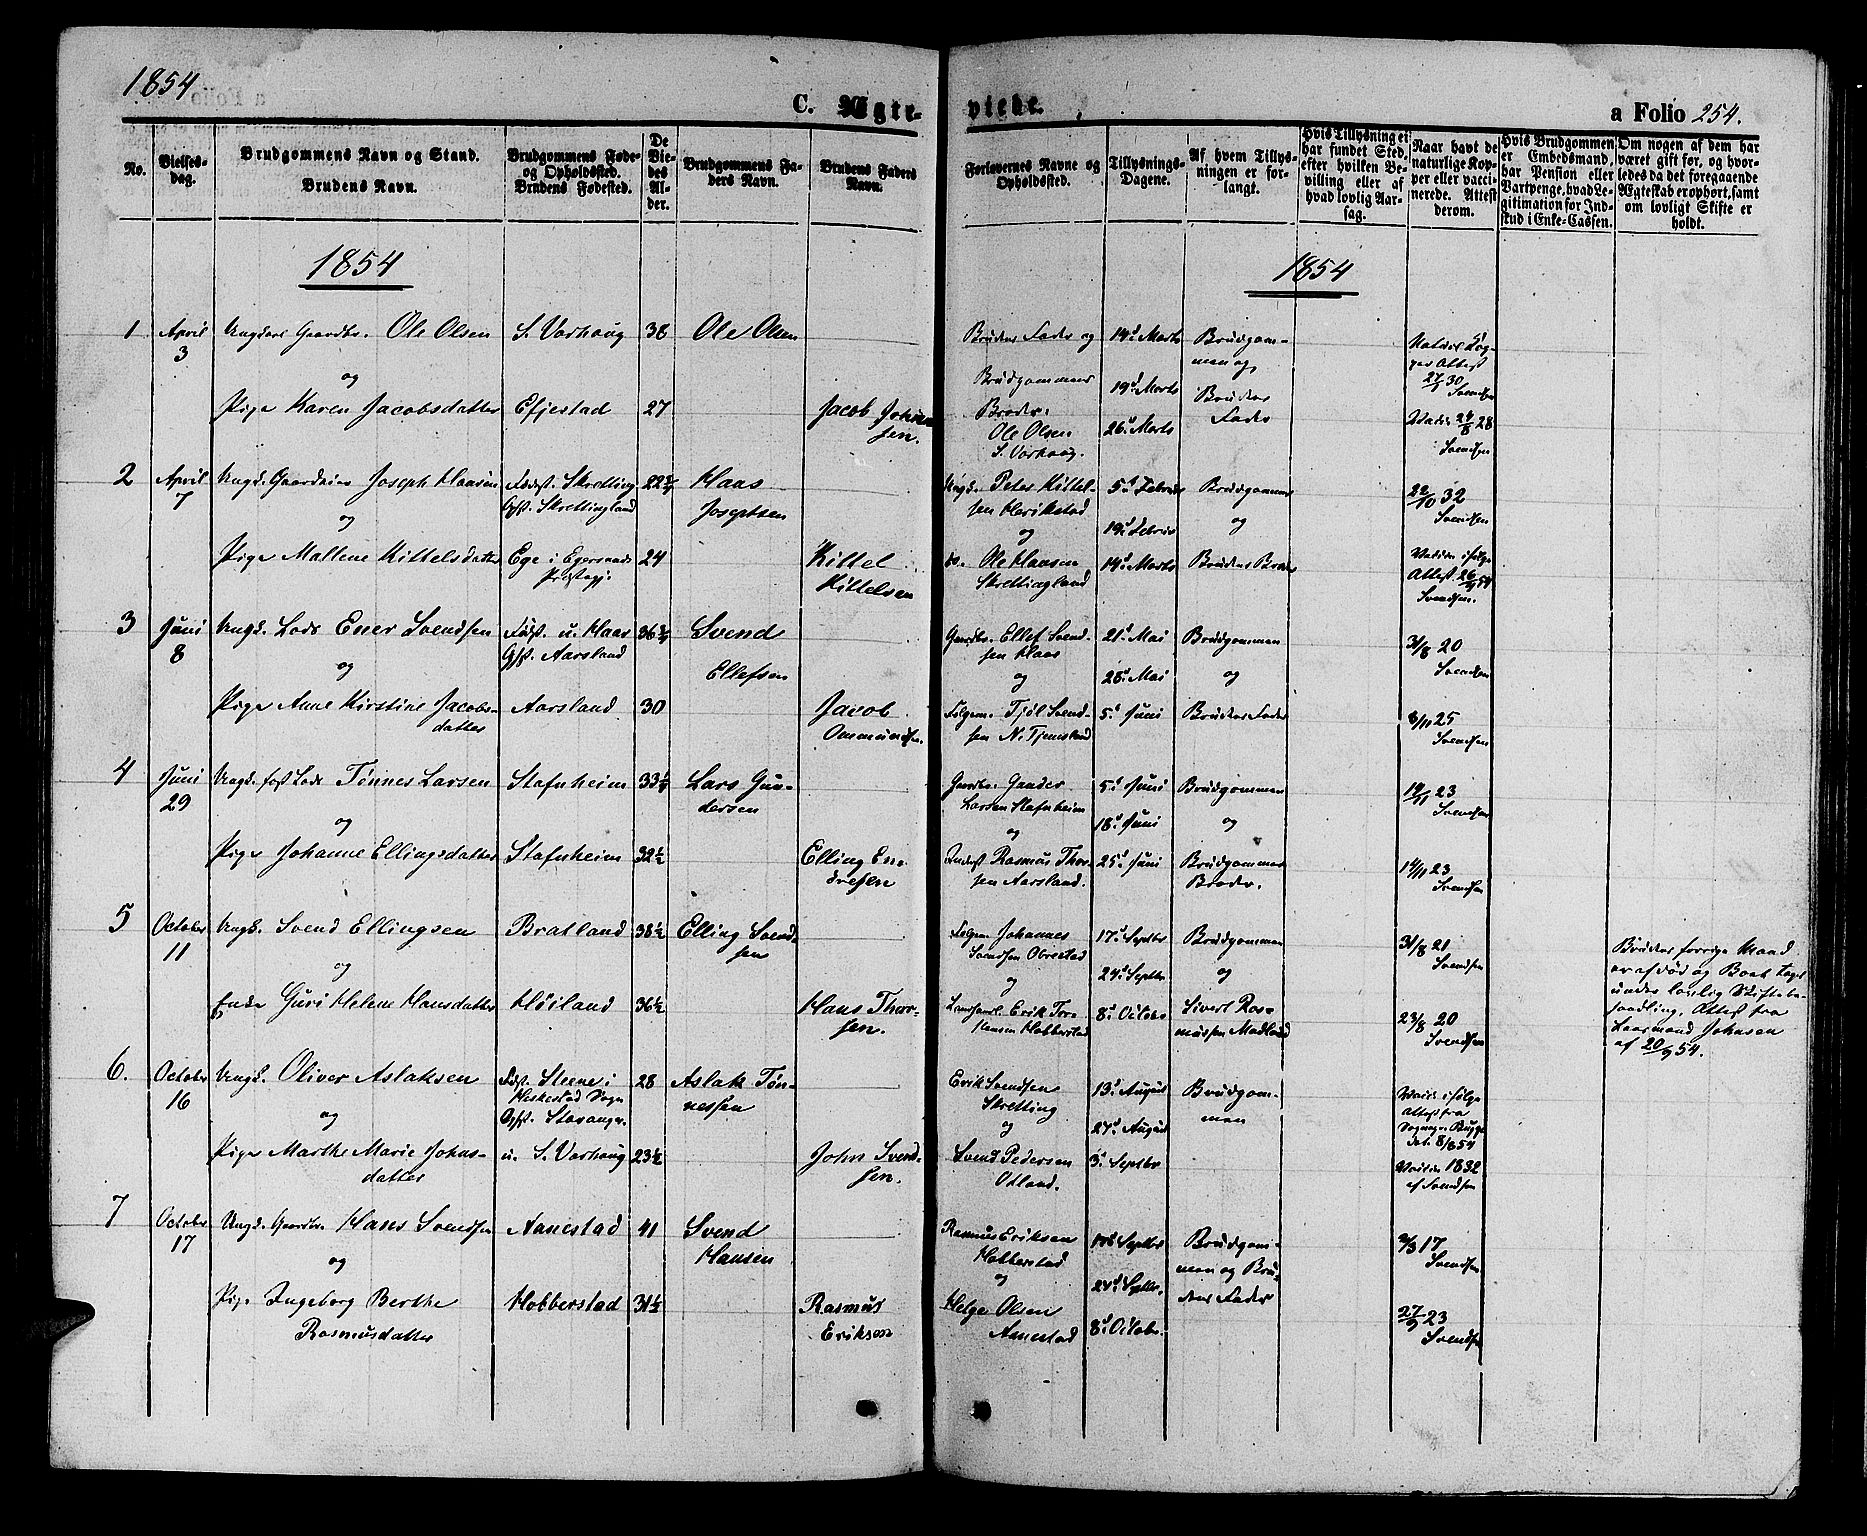 1854
C. Ægte-
viede.
a Folio 254.
No.
Vielses-
dag.
Brudgommens Navn og Stand.
Brudens Navn.
Brudgommens Føde-
og Opholdssted.
Brudens Fødested.
De
Vie-
des
Al-
der.
Brudgommens Fa-
ders Navn.
Brudens Faders
Navn.
Forlovernes Navne og
Opholdssted.
Tillysnings-
Dagene.
Af hvem Tillys-
ningen er for-
langt.
Hvis Tillysning ei
har fundet Sted,
efter hvilken Be-
villing eller af
hvad lovlig Aar-
sag.
Naar havt de
naturlige Kop-
per eller vacci-
nerede. Attest
derom.
Hvis Brudgommen
er Embedsmand,
har Pension eller
Vartpenge, hvad Le-
gitimation for Ind-
skud i Enke-Cassen.
Om nogen af dem har
været gift før, og hvor-
ledes da det foregaaende
Ægteskab er ophørt, samt
om lovligt Skifte er
holdt.
1854
1854
1
April
3
Ungkarl Gaardbr. Ole Olsen
og
Pige Karen Jacobsdatter
S. Varhoug
Efjestad
38
27
Ole Olsen
Jacob Johan-
sen.
Brudens Fader og
Brudgommens
Broder.
Ole Olsen
S. Varhoug.
14d Marts
19d Marts
26d Marts
Brudgom-
men og
Brudens
Fader
27/7 30
Svendsen
24/8 28
Svendsen
2
April
7
Ungk. Joseph Hansen
og
Pige Mallene Kittelsdatter
Fødst. Skretting
Ophst. Skrettingland
Ege i Egersunds
Prstgj.
24
Haas
Josephsen
Kittel
Kittelsen
Ungk. Peter Kittel-
sen Herikstad
og
do. Ole Hansen
Skrettingland
5d Februar
19d Februar
14d Marts
Brudgommen
og
Brudens Broder
22/10 32
Svendsen
Vaccin. ifølge
Attest 26/9 54
Svendsen.
3
Juni
8
Ungk. Lods Ener Svendsen
og
Pige Anne Kirstine Jacobs-
datter
Fødst. u. Haar
Ophst. Aarsland
Aarsland
30
Svend
Ellefsen
Jacob
Ommundsen.
Gaardbr. Ellef Svend-
sen Haar
og
Følgem. Tjøl Svend-
sen N. Tjemsland
21d Mai
28d Mai
5d Juni
Brudgommen
og
Brudens Fader
31/8 20
Svendsen
8/11 25
Svendsen
4
Juni
29
Ungk. fast Lods Tønnes Larsen
og
Pige Johanne Ellingsdatter
Stafnheim
Stafnheim
33½
32½
Lars Gun-
dersen
Elling En-
dresen
Gaardbr. Gunder
Larsen Stafnheim
og
Inderst Rasmus Thor-
sen Aarsland.
5d Juni
18d Juni
25d Juni
Brudgommen
og
Brudgommens
Broder.
19/11 23
Svendsen
14/11 23
Svendsen
5
October
11
Ungk. Svend Ellingsen
og
Enke Guri Helene Hansdatter
Bratland
Høiland
38½
36½
Elling Svend-
sen
Hans Thor-
sen.
Følgem. Johannes
Svendsen Obrestad
og
Erik Tor-
Hobberstad
17d Septbr
24d Septbr
8d Octobr
Brudgommen
og
Sivert Ras-
mussen Madland
31/8 21
Svendsen
23/8 20
Svendsen
Brudens forrige Mand
er afdød og Boet taget
under lovlig Skiftebe-
handling. Attest fra
Lensmand Johnsen
af 20/9 54.
6.
October
16
Ungk. Oliver Aslaksen
og
Pige Marthe Marie Johns-
datter
Fødst. Steene i
Heskestad Sogn
Ophst. Stavanger.
u. S. Varhoug
28
23½
Aslak Tøn-
nessen
John Svend-
sen.
Erik Svendsen
Skretting
og
Svend Pedersen
Odland.
13d August
27d August
3d Septbr
Brudgom-
men
Vaccin. ifølge
Attest fra
Sogneprs. Bugge
dat. 8/8 54
Vaccin 1832
af Svendsen
7
October
17
Ungk. Gaardbr. Hans Svendsen
og
Pige Ingeborg Berthe
Rasmusdatter
Aanestad
Hobberstad
41
31½
Svend
Hansen
Rasmus
Eriksen
Rasmus Eriksen
Hobberstad
og
Helge Olsen
Aanestad
17d Septbr
24d Septbr.
8d Octobr.
Brudgom-
men og Bru-
dens Fader
2/3 17
Svendsen
27/9 23
Svendsen